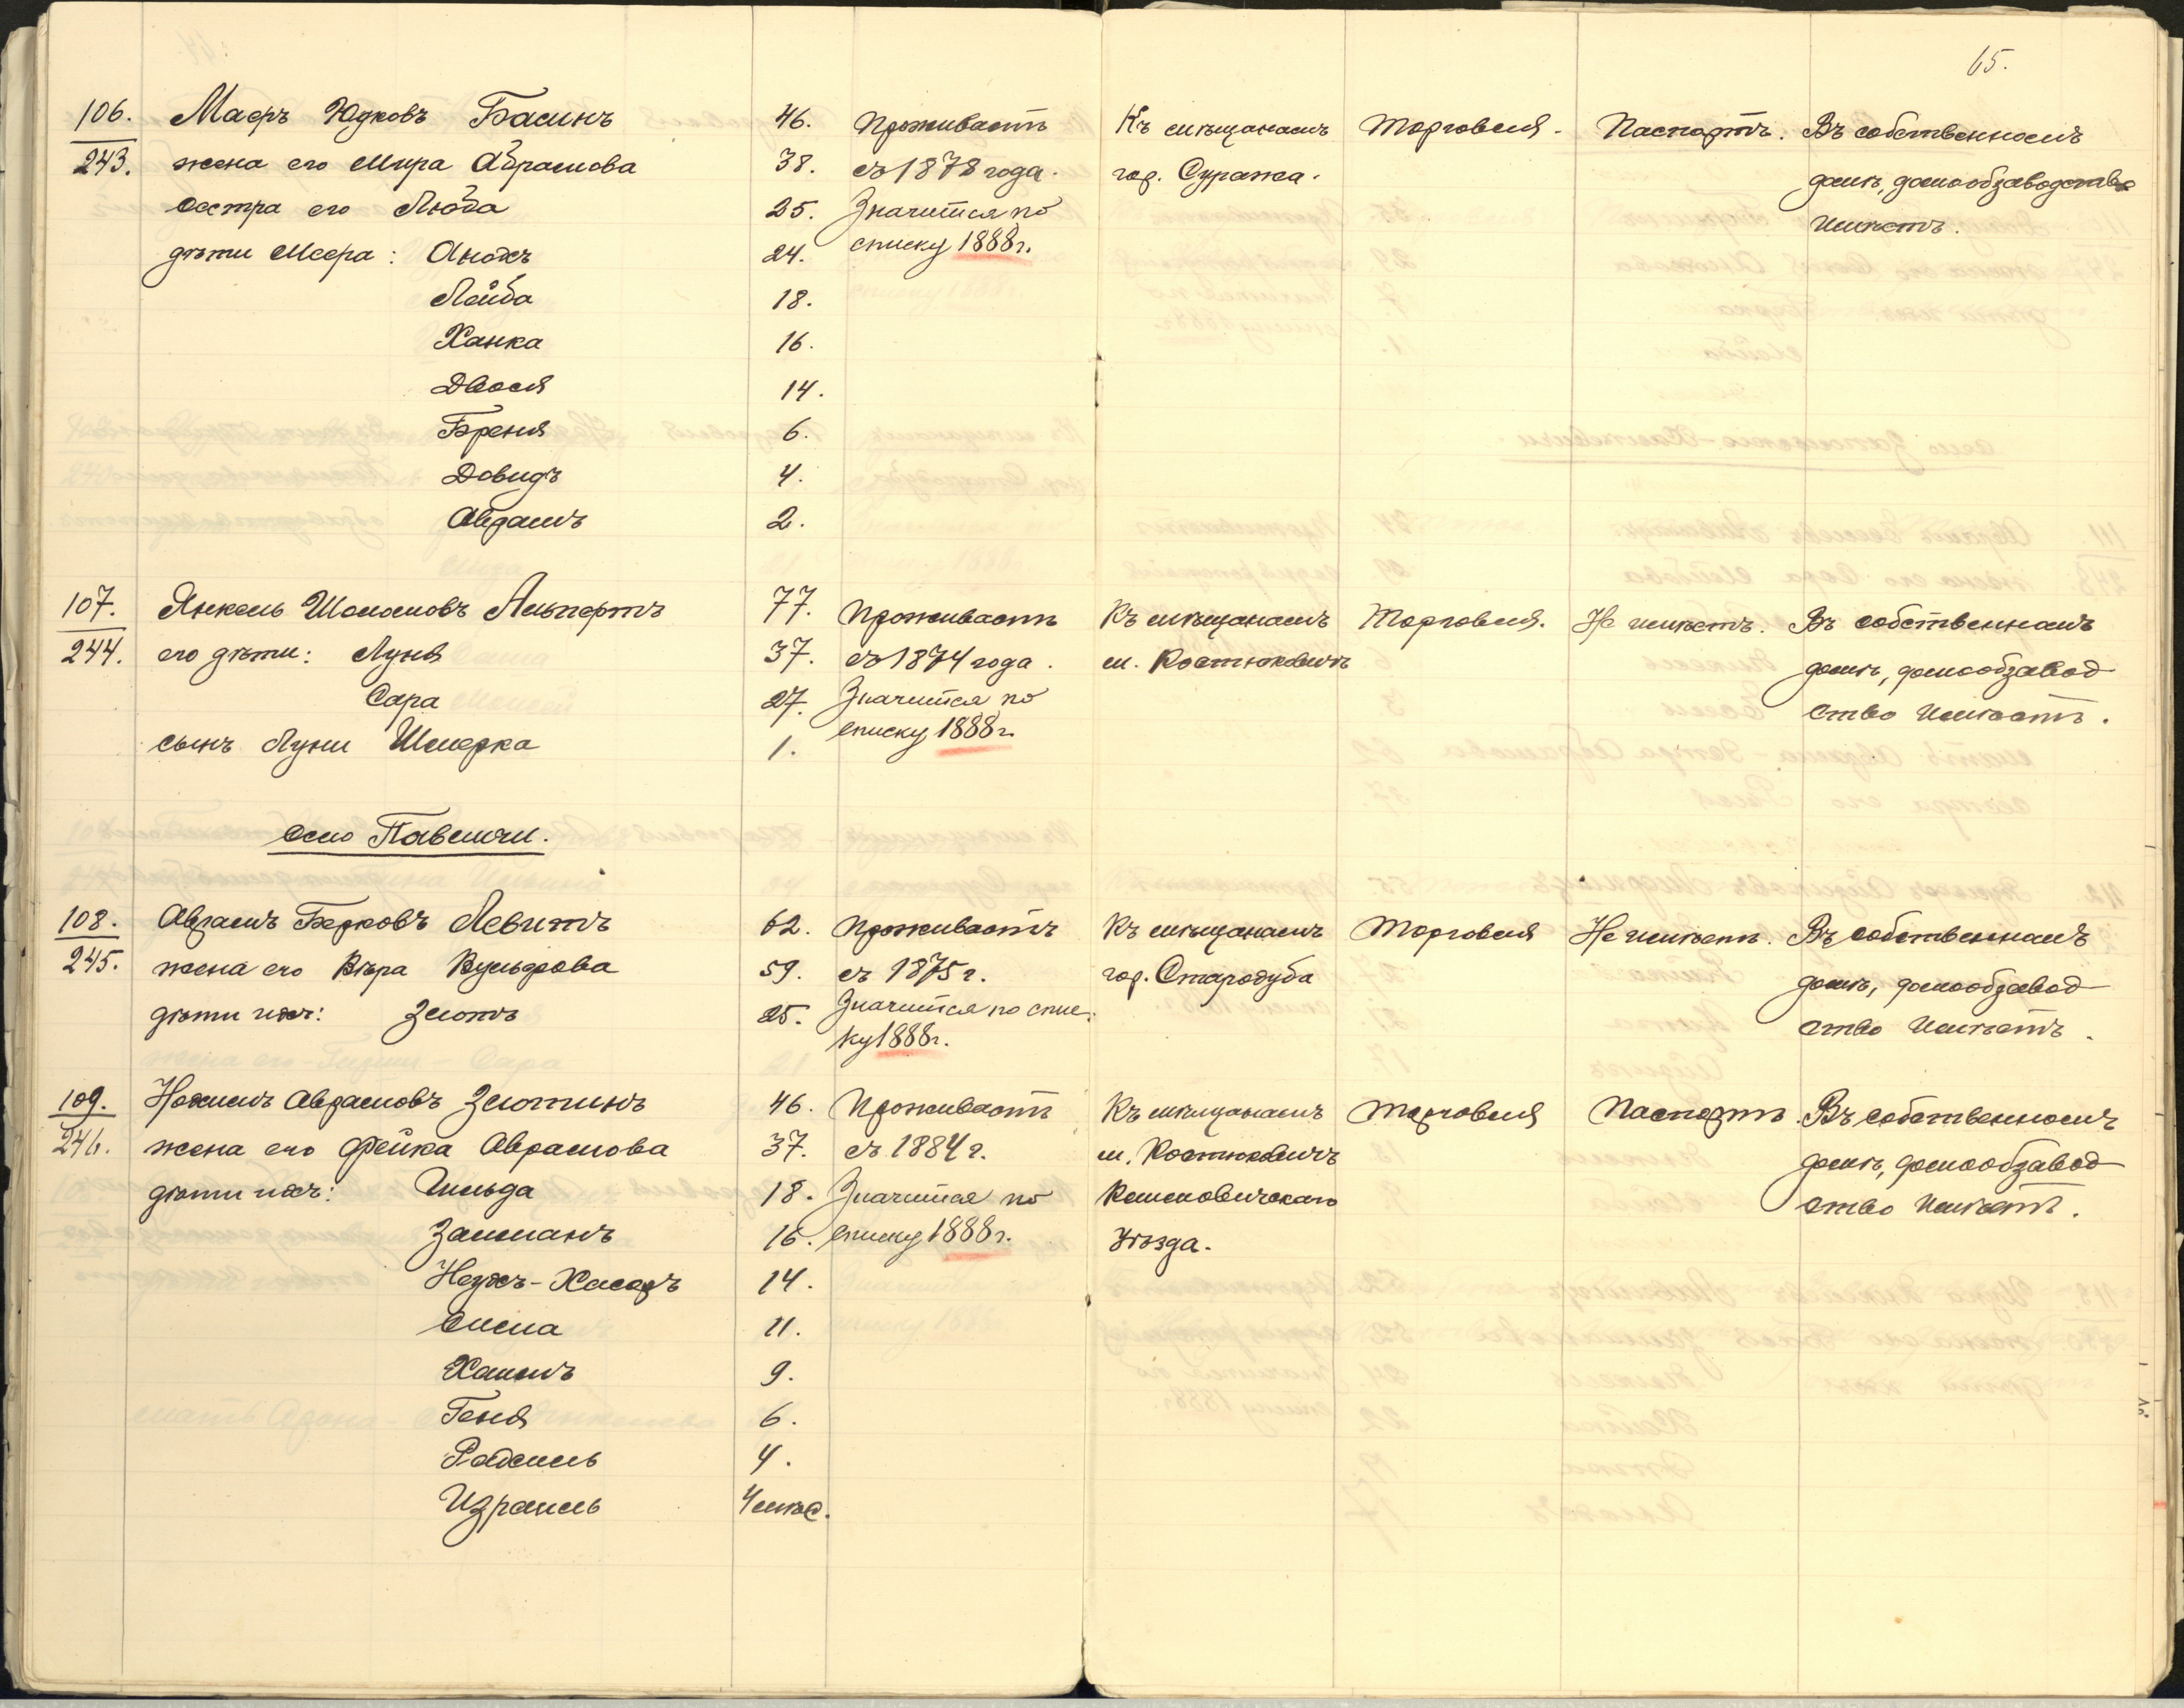 65.
106. Маеръ Юдковъ Басинъ 46. Проживаетъ Къ мѣщанамъ Торговля. Паспортъ. Въ собственномъ
243. жена его Мира Абрамова 38. съ 1878 года. гор. Суража. домѣ, домообзаводство
сестра его Люба 25. Значится по имѣетъ.
дѣти Меера: Анохъ 24. списку 1888 г.
Лейба 18.
Ханка 16.
Двося 14.
Бреня 6.
Довидъ 4.
Авдамъ 2.
107. Янкель Шоломовъ Альпертъ 77. Проживаетъ Къ мѣщанамъ Торговля. Не имѣетъ. Въ собственномъ
244. его дѣти: Луня 37. съ 1874 года. м. Костюковичъ домѣ, домообзавод
Сара 27. Значится по ство имѣетъ.
сынъ Луни Шмерка 1. списку 1888 г.
село Павличи.
108. Аврамъ Берковъ Левитъ 62. Проживаетъ Къ мѣщанамъ Торговля Не имѣетъ. Въ собственномъ
245. жена его Вѣра Вульфова 59. съ 1875 г. гор. Стародуба домѣ, домообзавод
дѣти ихъ: Злотъ 25. Значится по спис ство имѣетъ.
ку 1888 г.
109. Нохимъ Аврамовъ Злотинъ 46. Проживаетъ Къ мѣщанамъ Торговля Паспортъ. Въ собственномъ
246. жена его Фейка Аврамова 37. съ 1884 г. м. Костюковичъ домѣ, домообзавод
дѣти ихъ: Гильда 18. Значится по Климовичскаго ство имѣетъ.
Залманъ 16. списку 1888 г. уѣзда.
14.
Сима 11.
Хаимъ 9.
Геня 6.
4.
Израиль 4 мѣс.